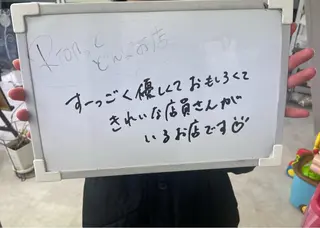 どんなお店
すーっごく優しくておもしろくて
きれいな店員さんが
いるお店です